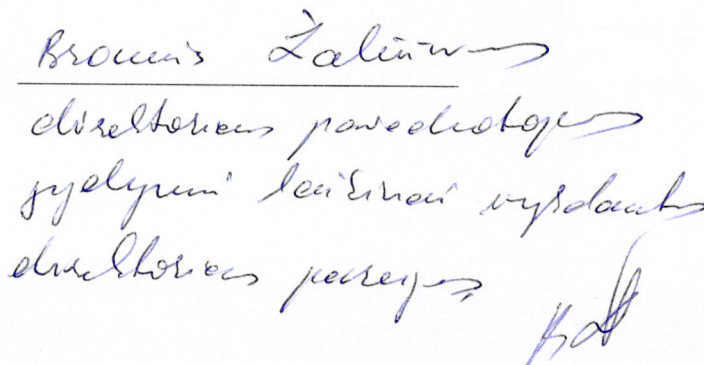 Bronius Žaliūnas
direktoriaus pavaduotojas
gydymui laikinai vykdantis
direktoriaus pareigas